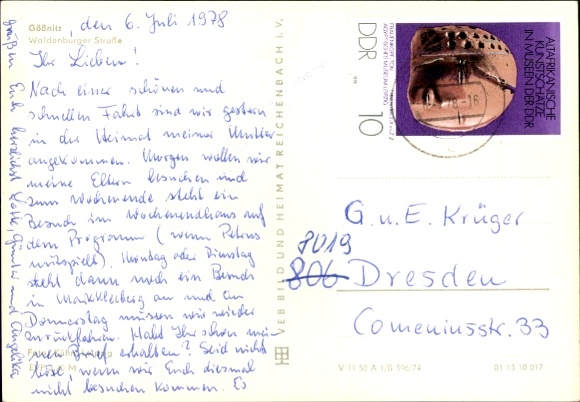 Gößnitz
Waldenburger Straße
, den 6. Juli 1978
Ihr Lieben!
Nach einer schönen und
schnellen Fahrt sind wir gestern
in der Heimat meiner Mutter
angekommen. Morgen wollen wir
meine Eltern besuchen und
zum Wochenende steht ein
Besuch im Wochenendhaus auf
dem Programm (wenn Petrus
mitspielt). Montag oder Dienstag
steht dann noch ein Besuch
in Markkleeberg an und am
Donnerstag müssen wir wieder
zurückfahren. Habt Ihr schon mei-
nen Brief erhalten? Seid nicht
böse, wenn wir Euch diesmal
nicht besuchen kommen. Es
grüßen Euch herzlichst Eure Günter und Angelika
VEB BILD UND HEIMAT REICHENBACH I. V.
V 11 50 A 1/G 596/74
01 13 10 017
DDR
10
ALTAFRIKANISCHE
KUNSTSCHÄTZE
IN MUSEEN DER DDR
G. u. E. Krüger
8019
806 Dresden
Comeniusstr. 33